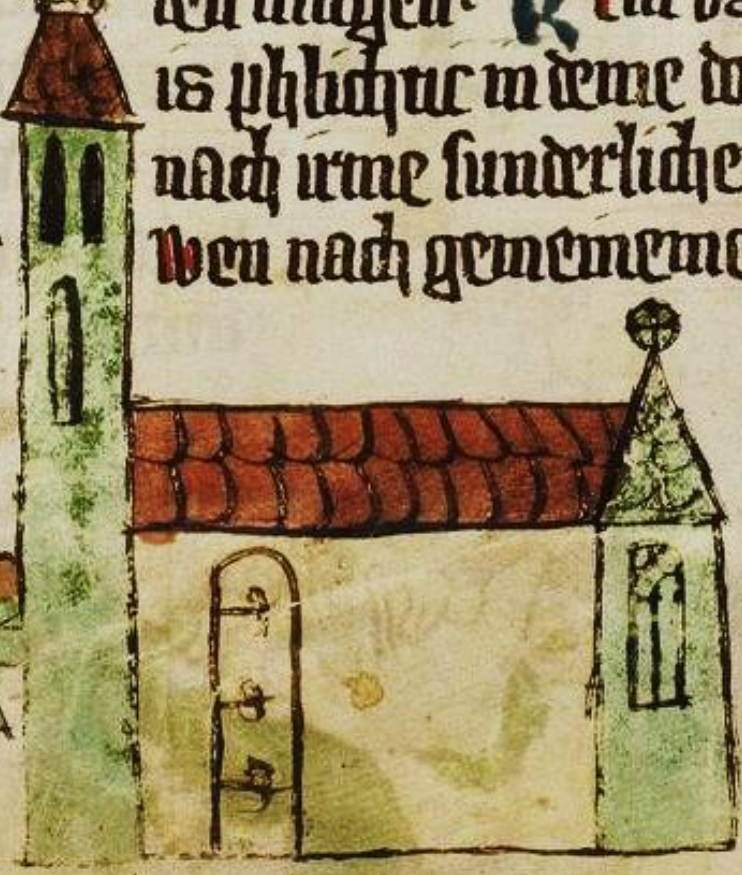 is phlichtic in deme do
nach irme sunderliche
wen nach gemeineme